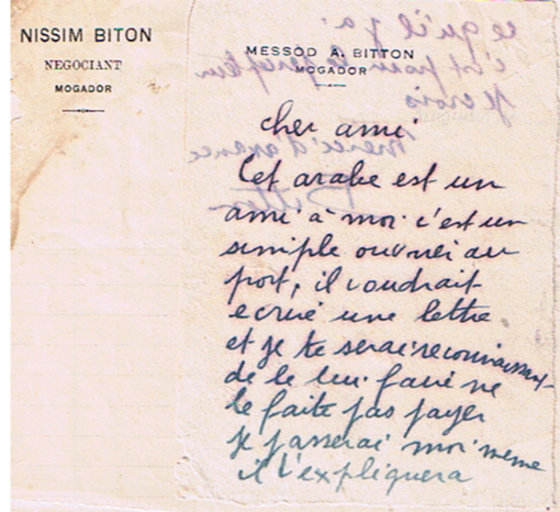 NISSIM BITON
NEGOCIANT
MOGADOR
MESSOD A. BITTON
MOGADOR
cher ami
Cet arabe est un
ami à moi c'est un
simple ouvrier au
port, il voudrait
ecrire une lettre
et je te serai reconnaissant
de le lui faire ne
le faite pas payer
je passerai moi meme
il t'expliquera
ce qu'il y a
c'est pour le percepteur
je crois
Merci d'avance
Bitton